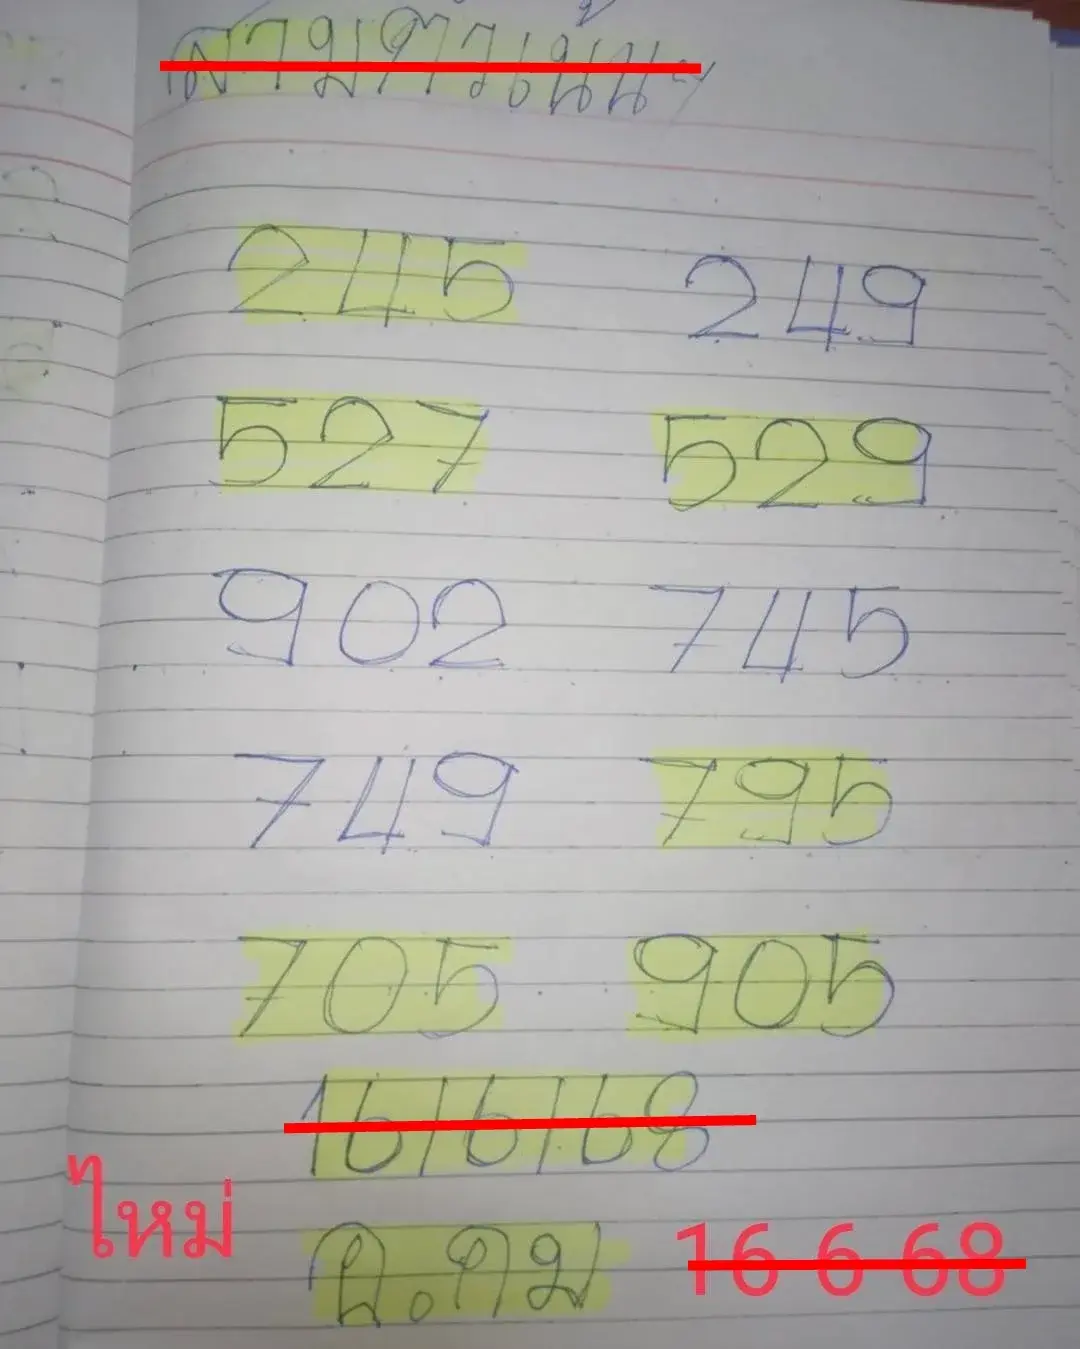 สามตัวเน้นๆ
245 249
527 529
902 745
749 795
705 905
16/6/68
ใหม่
น.คม 16 6 68